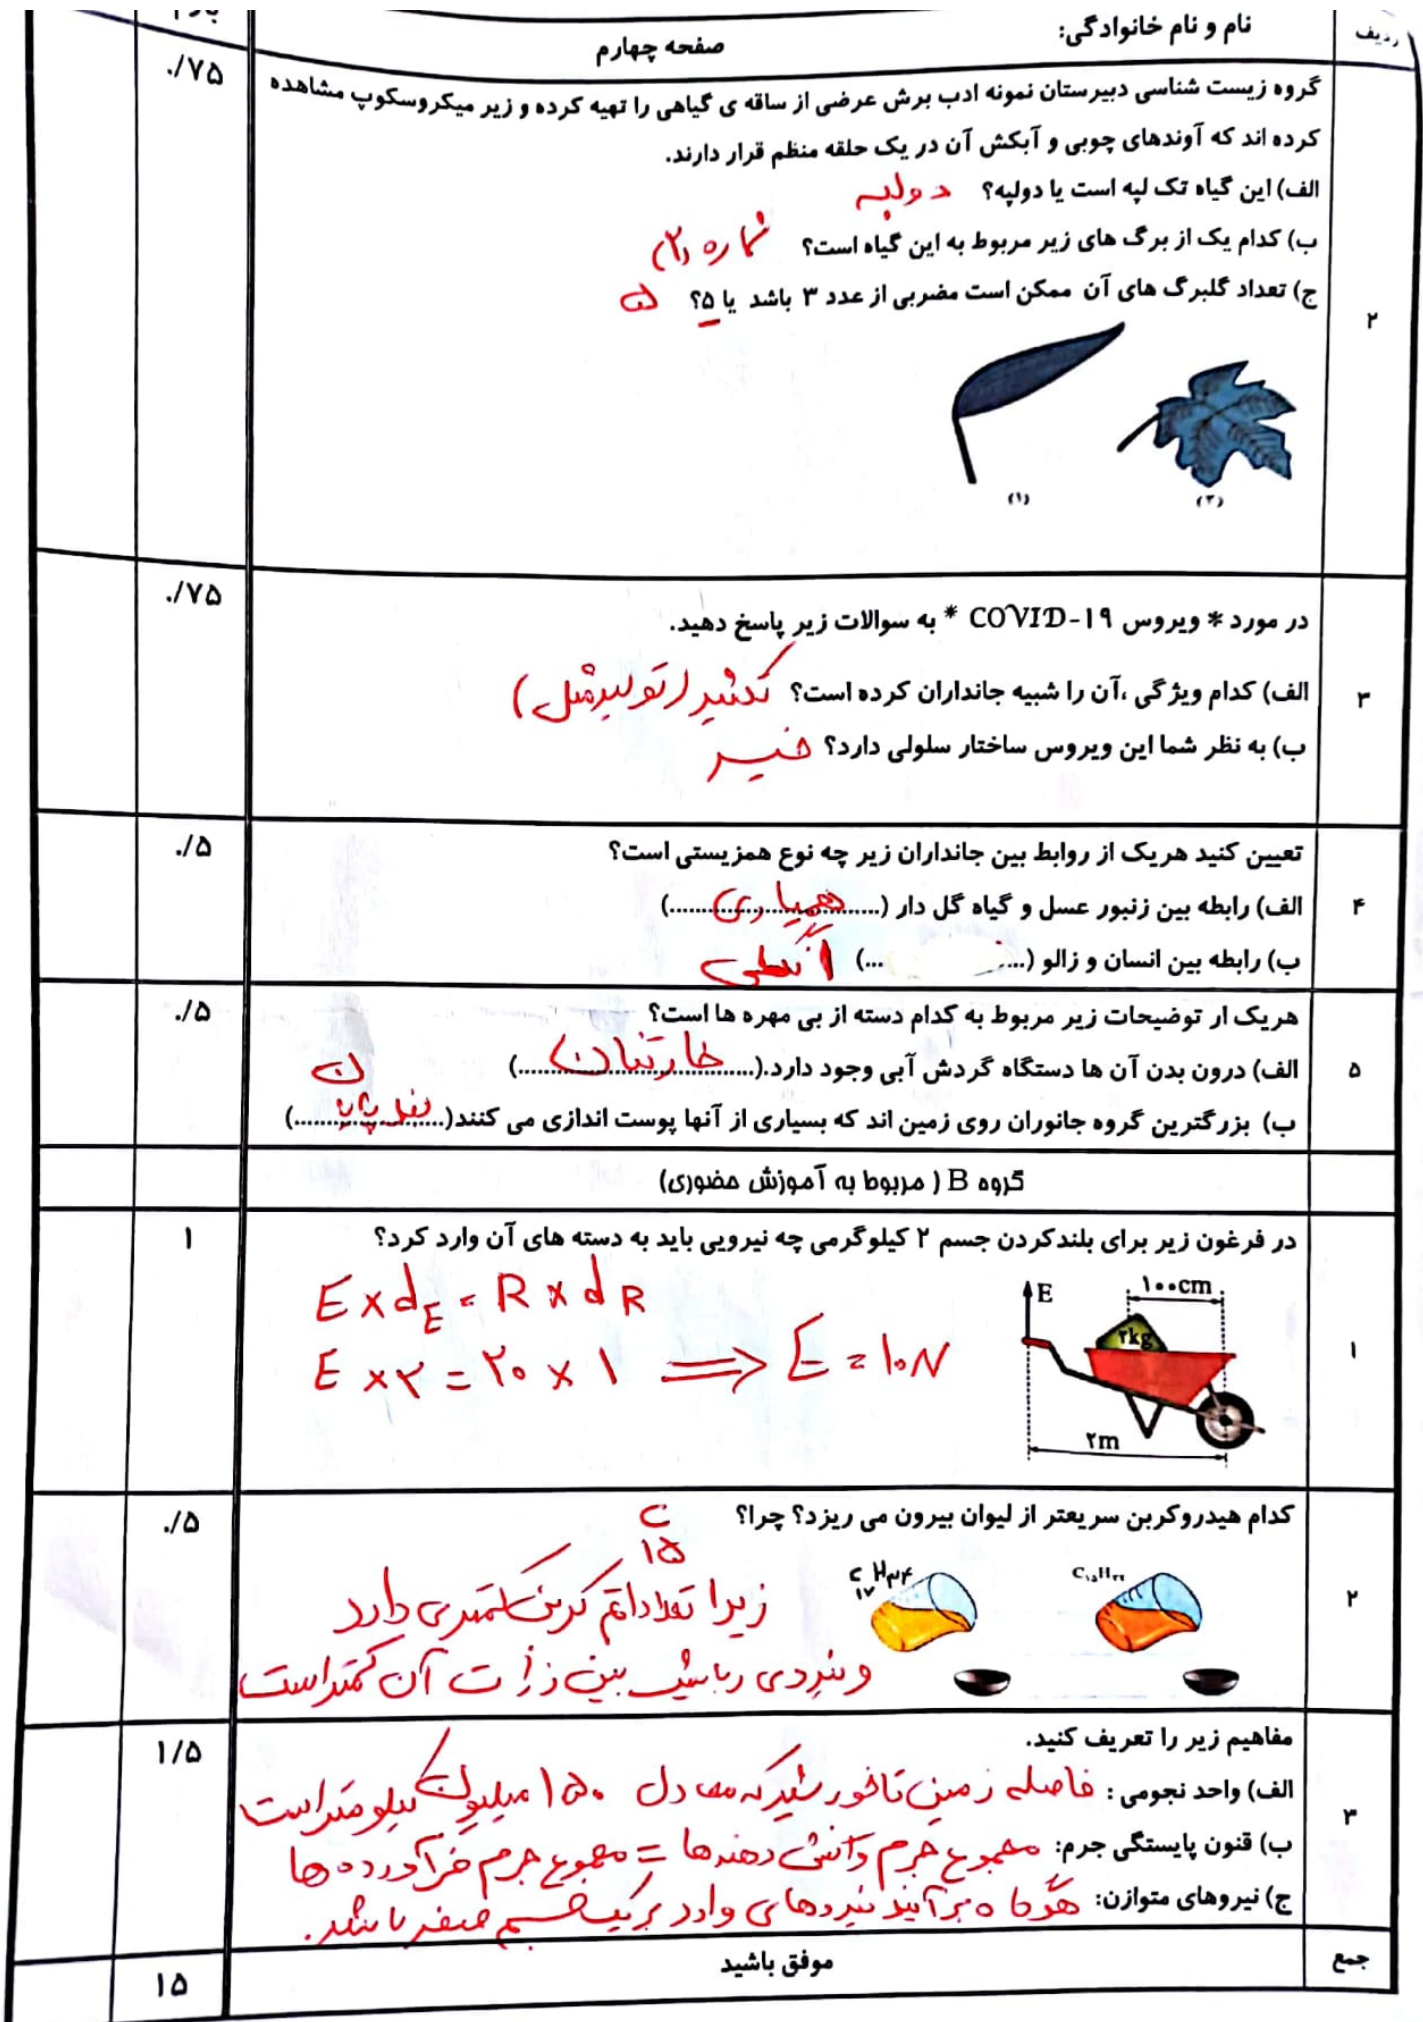 ردیف
نام و نام خانوادگی:
صفحه چهارم
بارم
گروه زیست شناسی دبیرستان نمونه ادب برش عرضی از ساقه ی گیاهی را تهیه کرده و زیر میکروسکوپ مشاهده
کرده اند که آوندهای چوبی و آبکش آن در یک حلقه منظم قرار دارند.
۰/۷۵
الف) این گیاه تک لپه است یا دولپه؟ دولپه
ب) کدام یک از برگ های زیر مربوط به این گیاه است؟ شماره (۲)
ج) تعداد گلبرگ های آن ممکن است مضربی از عدد ۳ باشد یا ۵؟ ۵
۲
(۱)
(۲)
در مورد * ویروس COVID-۱۹ * به سوالات زیر پاسخ دهید.
۰/۷۵
الف) کدام ویژگی ،آن را شبیه جانداران کرده است؟ تکثیر (تولیدمثل)
۳
ب) به نظر شما این ویروس ساختار سلولی دارد؟ خیر
تعیین کنید هریک از روابط بین جانداران زیر چه نوع همزیستی است؟
۰/۵
الف) رابطه بین زنبور عسل و گیاه گل دار (......همیاری......)
۴
ب) رابطه بین انسان و زالو (... ...) انگلی
هریک ار توضیحات زیر مربوط به کدام دسته از بی مهره ها است؟
۰/۵
الف) درون بدن آن ها دستگاه گردش آبی وجود دارد.(......خارتنان......)
۵
ب) بزرگترین گروه جانوران روی زمین اند که بسیاری از آنها پوست اندازی می کنند(......بندپایان......)
گروه B ( مربوط به آموزش حضوری)
در فرغون زیر برای بلندکردن جسم ۲ کیلوگرمی چه نیرویی باید به دسته های آن وارد کرد؟
۱
۱
E × dE = R × dR
E × ۲ = ۲۰ × ۱ ⟹ E = ۱۰N
E
۱۰۰cm
۲kg
۲m
کدام هیدروکربن سریعتر از لیوان بیرون می ریزد؟ چرا؟ C۱۵
۰/۵
۲
C۱۵H۳۲
C۱۷H۳۴
زیرا تعداد اتم کربن کمتری دارد
و نیروی ربایش بین ذرات آن کمتر است
مفاهیم زیر را تعریف کنید.
۱/۵
الف) واحد نجومی : فاصله زمین تا خورشید که معادل ۱۵۰ میلیون کیلومتر است
۳
ب) قنون پایستگی جرم: مجموع جرم واکنش دهنده‌ها = مجموع جرم فرآورده ها
ج) نیروهای متوازن: هرگاه برآیند نیروهای وارد بر یک جسم صفر باشد.
جمع
موفق باشید
۱۵